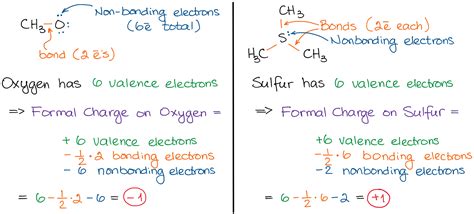 Non-bonding electrons
(6ē total)
CH₃–O:
bond (2 ē's)
Oxygen has 6 valence electrons
=> Formal Charge on Oxygen =
+6 valence electrons
-½·2 bonding electrons
-6 nonbonding electrons
= 6-½·2-6 = -1
CH₃
Bonds (2ē each)
S:
Nonbonding electrons
H₃C
CH₃
Sulfur has 6 valence electrons
=> Formal Charge on Sulfur =
+6 valence electrons
-½·6 bonding electrons
-2 nonbonding electrons
= 6-½·6-2 = +1